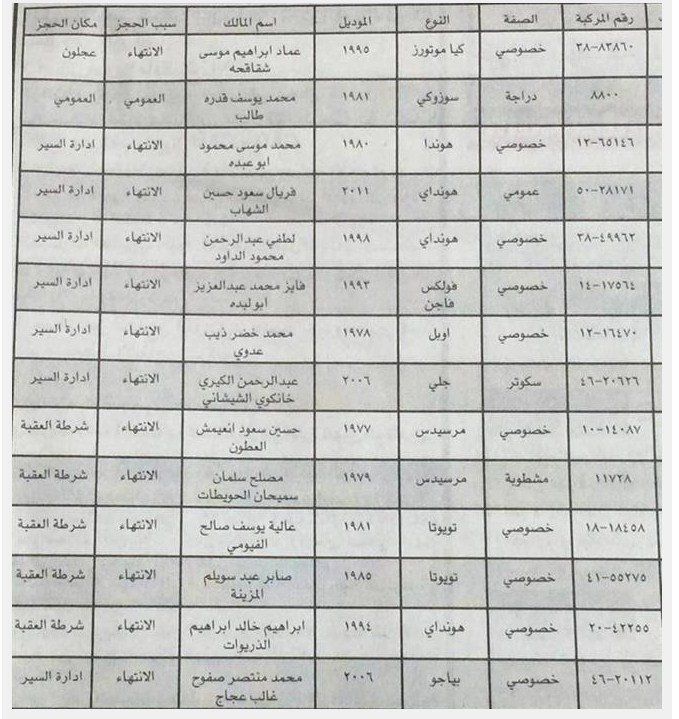 رقم المركبة الصفة النوع الموديل اسم المالك سبب الحجز مكان الحجز
٣٨-٨٣٨٦٠ خصوصي كيا موتورز ١٩٩٥ عماد ابراهيم موسى الانتهاء عجلون
شقاقحه
٨٨٠٠ دراجة سوزوكي ١٩٨١ محمد يوسف قدره العمومي العمومي
طالب
١٢-٦٥١٤٦ خصوصي هوندا ١٩٨٠ محمد موسى محمود الانتهاء ادارة السير
ابو عبده
٥٠-٢٨١٧١ عمومي هونداي ٢٠١١ فريال سعود حسين الانتهاء ادارة السير
الشهاب
٣٨-٤٩٩٦٢ خصوصي هونداي ١٩٩٨ لطفي عبدالرحمن الانتهاء ادارة السير
محمود الداود
١٤-١٧٥٦٤ خصوصي فولكس ١٩٩٣ فايز محمد عبدالعزيز الانتهاء ادارة السير
فاجن ابو لبده
١٢-١٦٤٧٠ خصوصي اوبل ١٩٧٨ محمد خضر ذيب الانتهاء ادارة السير
عدوي
٤٦-٢٠٦٢٦ سكوتر جلي ٢٠٠٦ عبدالرحمن الكيري الانتهاء ادارة السير
خانكوي الشيشاني
١٠-١٤٠٨٧ خصوصي مرسيدس ١٩٧٧ حسين سعود انعيمش الانتهاء شرطة العقبة
العطون
١١٧٢٨ مشطوبة مرسيدس ١٩٧٩ مصلح سلمان الانتهاء شرطة العقبة
سميحان الحويطات
١٨-١٨٤٥٨ خصوصي تويوتا ١٩٨١ عالية يوسف صالح الانتهاء شرطة العقبة
الفيومي
٤١-٥٥٢٧٥ خصوصي تويوتا ١٩٨٥ صابر عبد سويلم الانتهاء شرطة العقبة
المزينة
٢٠-٤٢٢٥٥ خصوصي هونداي ١٩٩٤ ابراهيم خالد ابراهيم الانتهاء شرطة العقبة
الذريوات
٤٦-٢٠١١٢ خصوصي بياجو ٢٠٠٦ محمد منتصر صفوح الانتهاء ادارة السير
غالب عجاج